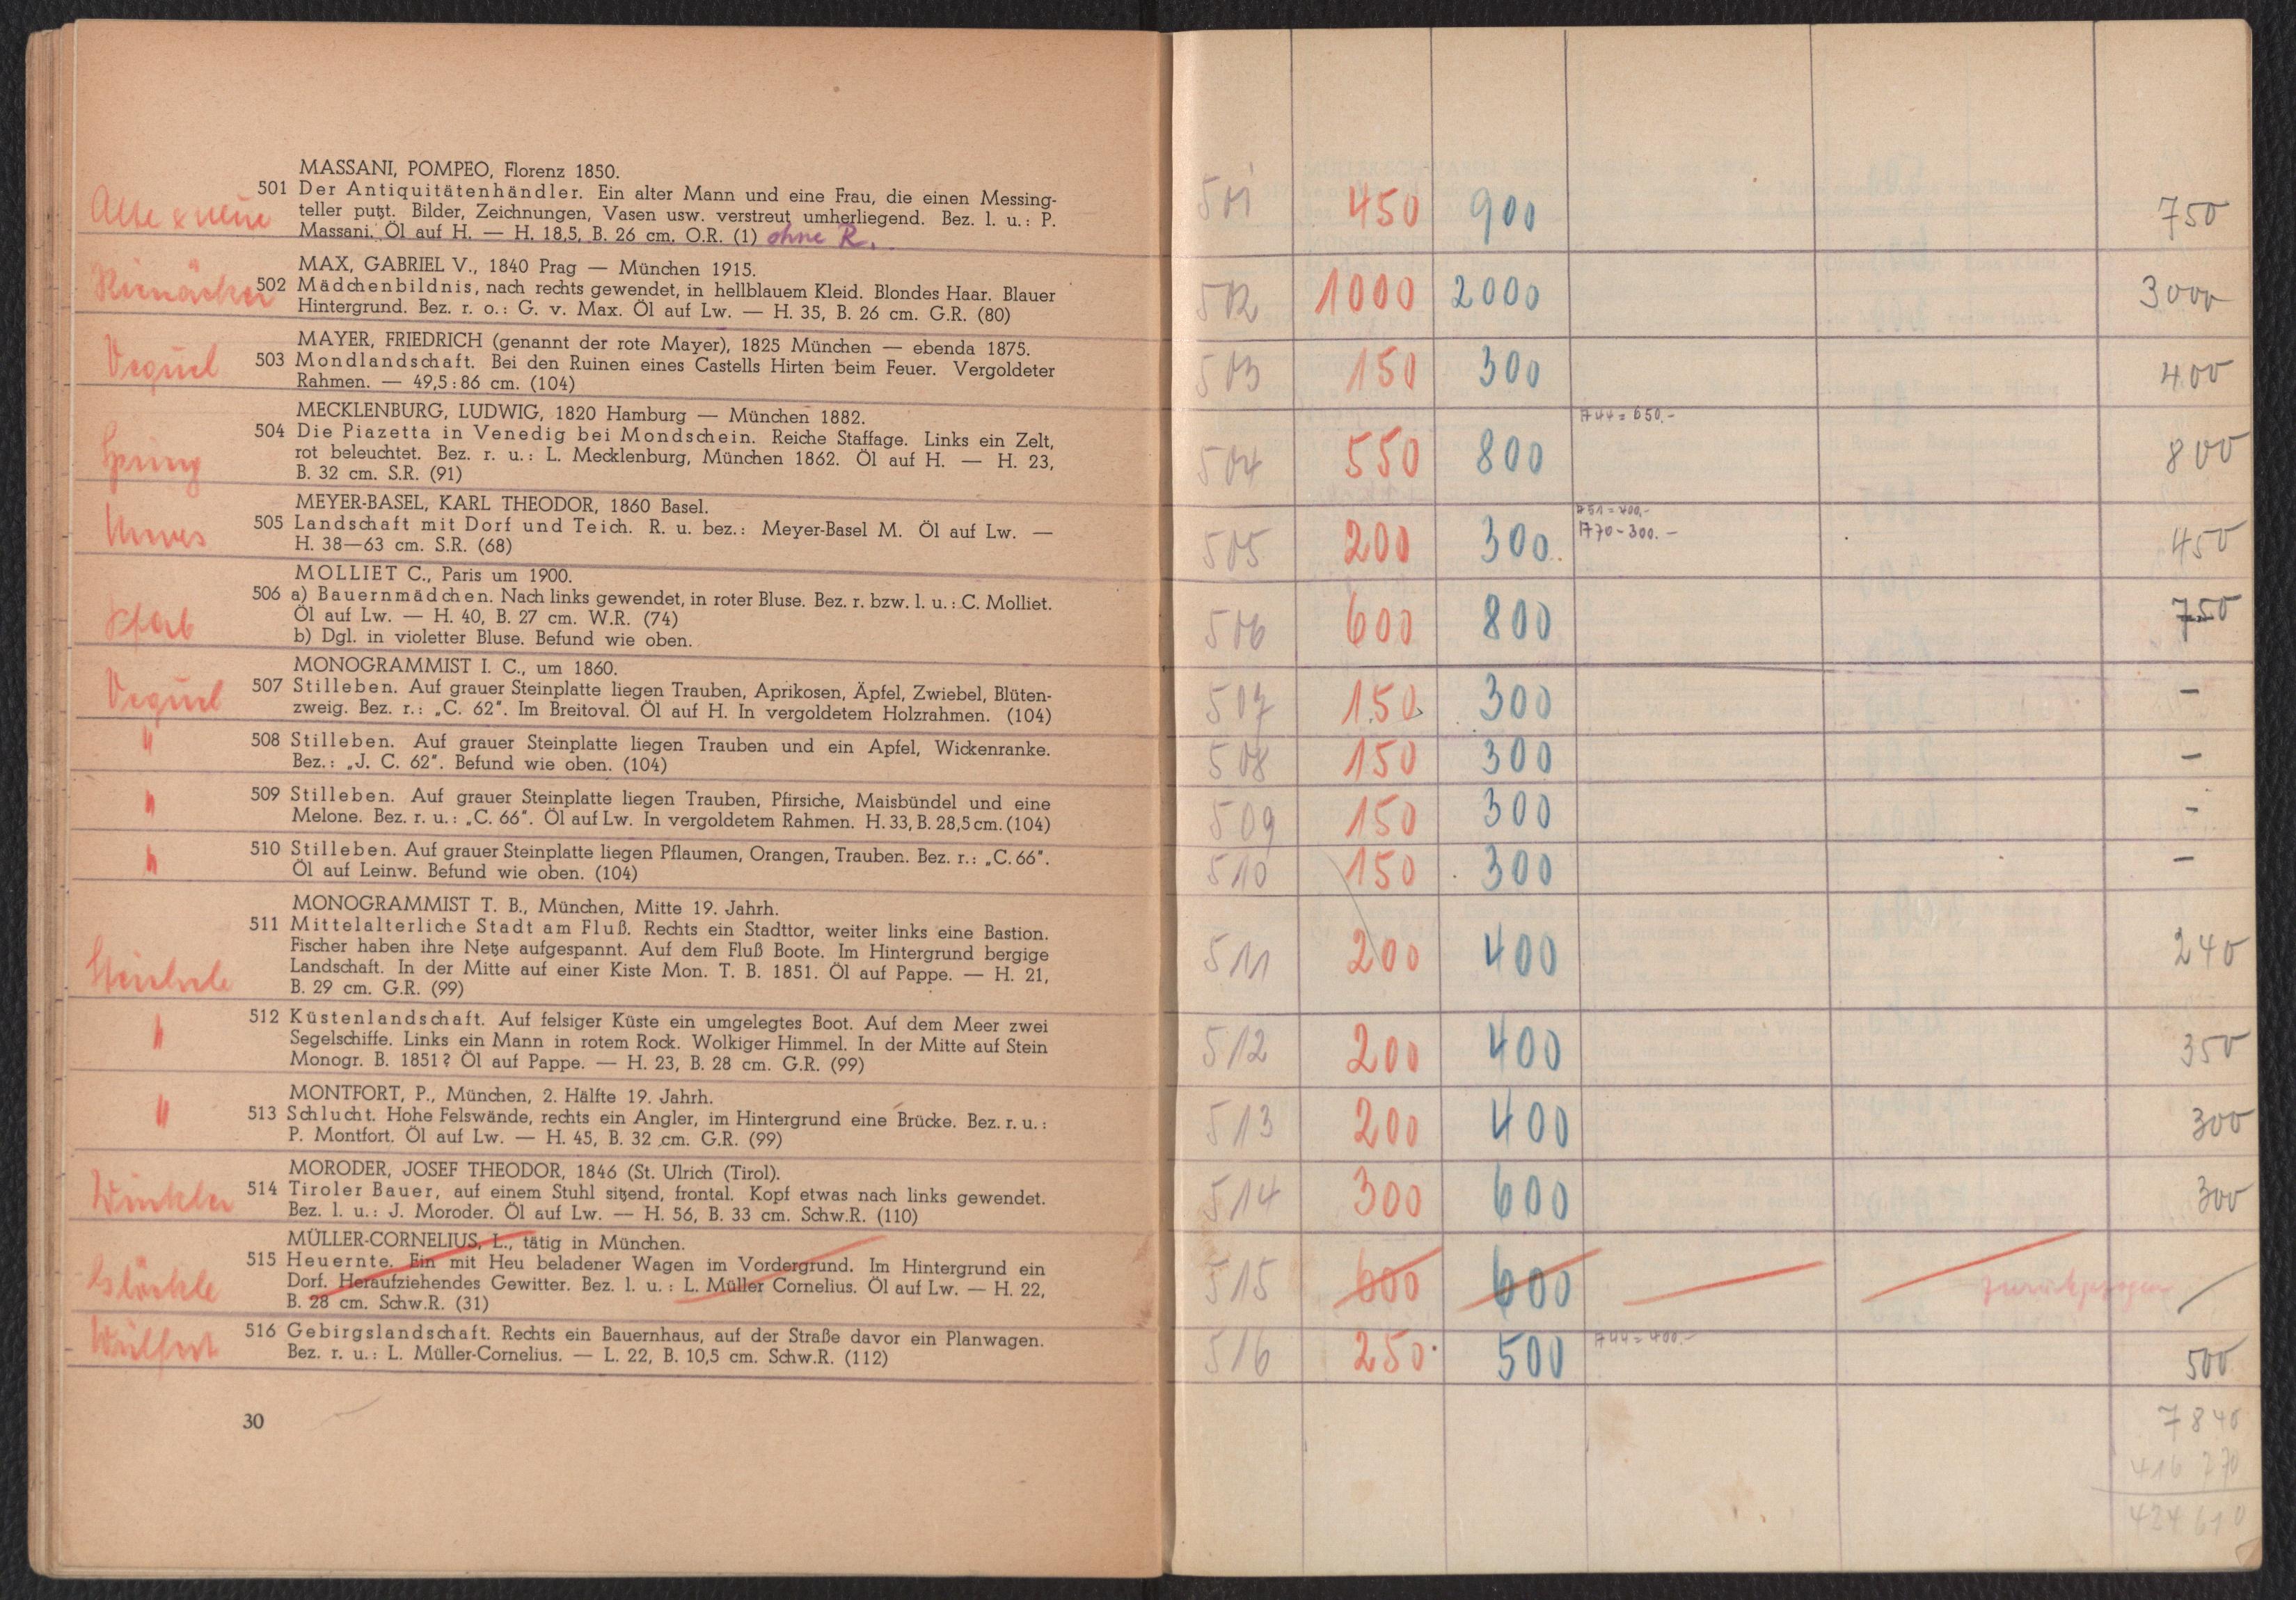 MASSANI, POMPEO, Florenz 1850.
501 Der Antiquitätenhändler. Ein alter Mann und eine Frau, die einen Messing-
teller putzt. Bilder, Zeichnungen, Vasen usw. verstreut umherliegend. Bez. l. u.: P.
Massani. Öl auf H. — H. 18,5, B. 26 cm. O.R. (1) ohne R.
MAX, GABRIEL V., 1840 Prag — München 1915.
502 Mädchenbildnis, nach rechts gewendet, in hellblauem Kleid. Blondes Haar. Blauer
Hintergrund. Bez. r. o.: G. v. Max. Öl auf Lw. — H. 35, B. 26 cm. G.R. (80)
MAYER, FRIEDRICH (genannt der rote Mayer), 1825 München — ebenda 1875.
503 Mondlandschaft. Bei den Ruinen eines Castells Hirten beim Feuer. Vergoldeter
Rahmen. — 49,5 : 86 cm. (104)
MECKLENBURG, LUDWIG, 1820 Hamburg — München 1882.
504 Die Piazetta in Venedig bei Mondschein. Reiche Staffage. Links ein Zelt,
rot beleuchtet. Bez. r. u.: L. Mecklenburg, München 1862. Öl auf H. — H. 23,
B. 32 cm. S.R. (91)
MEYER-BASEL, KARL THEODOR, 1860 Basel.
505 Landschaft mit Dorf und Teich. R. u. bez.: Meyer-Basel M. Öl auf Lw. —
H. 38—63 cm. S.R. (68)
MOLLIET C., Paris um 1900.
506 a) Bauernmädchen. Nach links gewendet, in roter Bluse. Bez. r. bzw. l. u.: C. Molliet.
Öl auf Lw. — H. 40, B. 27 cm. W.R. (74)
b) Dgl. in violetter Bluse. Befund wie oben.
MONOGRAMMIST I. C., um 1860.
507 Stilleben. Auf grauer Steinplatte liegen Trauben, Aprikosen, Äpfel, Zwiebel, Blüten-
zweig. Bez. r.: „C. 62". Im Breitoval. Öl auf H. In vergoldetem Holzrahmen. (104)
" 508 Stilleben. Auf grauer Steinplatte liegen Trauben und ein Apfel, Wickenranke.
Bez.: „J. C. 62". Befund wie oben. (104)
" 509 Stilleben. Auf grauer Steinplatte liegen Trauben, Pfirsiche, Maisbündel und eine
Melone. Bez. r. u.: „C. 66". Öl auf Lw. In vergoldetem Rahmen. H. 33, B. 28,5 cm. (104)
" 510 Stilleben. Auf grauer Steinplatte liegen Pflaumen, Orangen, Trauben. Bez. r.: „C. 66".
Öl auf Leinw. Befund wie oben. (104)
MONOGRAMMIST T. B., München, Mitte 19. Jahrh.
511 Mittelalterliche Stadt am Fluß. Rechts ein Stadttor, weiter links eine Bastion.
Fischer haben ihre Netze aufgespannt. Auf dem Fluß Boote. Im Hintergrund bergige
Landschaft. In der Mitte auf einer Kiste Mon. T. B. 1851. Öl auf Pappe. — H. 21,
B. 29 cm. G.R. (99)
" 512 Küstenlandschaft. Auf felsiger Küste ein umgelegtes Boot. Auf dem Meer zwei
Segelschiffe. Links ein Mann in rotem Rock. Wolkiger Himmel. In der Mitte auf Stein
Monogr. B. 1851? Öl auf Pappe. — H. 23, B. 28 cm. G.R. (99)
MONTFORT, P., München, 2. Hälfte 19. Jahrh.
" 513 Schlucht. Hohe Felswände, rechts ein Angler, im Hintergrund eine Brücke. Bez. r. u.:
P. Montfort. Öl auf Lw. — H. 45, B. 32 cm. G.R. (99)
MORODER, JOSEF THEODOR, 1846 (St. Ulrich (Tirol).
Winkler 514 Tiroler Bauer, auf einem Stuhl sitzend, frontal. Kopf etwas nach links gewendet.
Bez. l. u.: J. Moroder. Öl auf Lw. — H. 56, B. 33 cm. Schw.R. (110)
MÜLLER-CORNELIUS, L., tätig in München.
515 Heuernte. Ein mit Heu beladener Wagen im Vordergrund. Im Hintergrund ein
Dorf. Heraufziehendes Gewitter. Bez. l. u.: L. Müller Cornelius. Öl auf Lw. — H. 22,
B. 28 cm. Schw.R. (31)
516 Gebirgslandschaft. Rechts ein Bauernhaus, auf der Straße davor ein Planwagen.
Bez. r. u.: L. Müller-Cornelius. — L. 22, B. 10,5 cm. Schw.R. (112)
30
501 450 900 750
502 1000 2000 3000
503 150 300 400
504 550 800 1744 = 650.- 800
505 200 300 1770 - 300.- 450
506 600 800 750
507 150 300 -
508 150 300 -
509 150 300 -
510 150 300 -
511 200 400 240
512 200 400 350
513 200 400 300
514 300 600 300
515 600 600 zurückgezogen
516 250 500 1744 = 400.- 500
7840
416 770
424 610